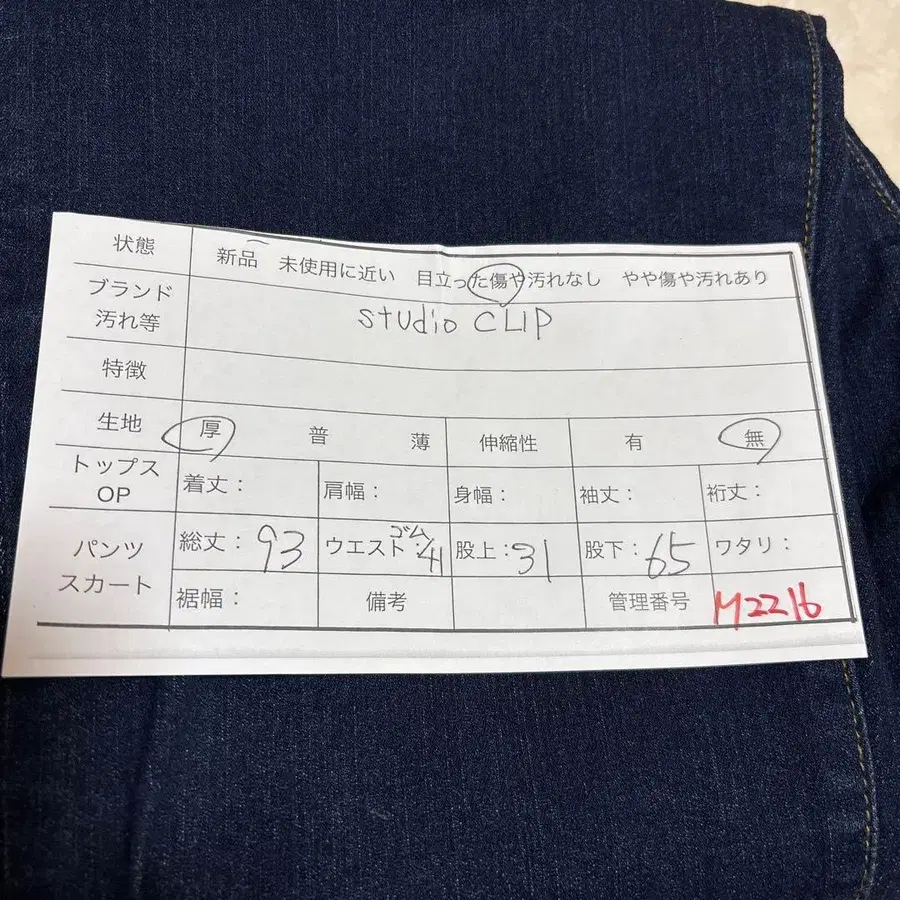 状態 新品 未使用に近い 目立った傷や汚れなし やや傷や汚れあり
ブランド
汚れ等 studio CLIP
特徴
生地 厚 普 薄 伸縮性 有 無
トップス
OP 着丈: 肩幅: 身幅: 袖丈: 裄丈:
パンツ
スカート 総丈:93 ウエスト:ゴム41 股上:31 股下:65 ワタリ:
裾幅: 備考 管理番号 M2216